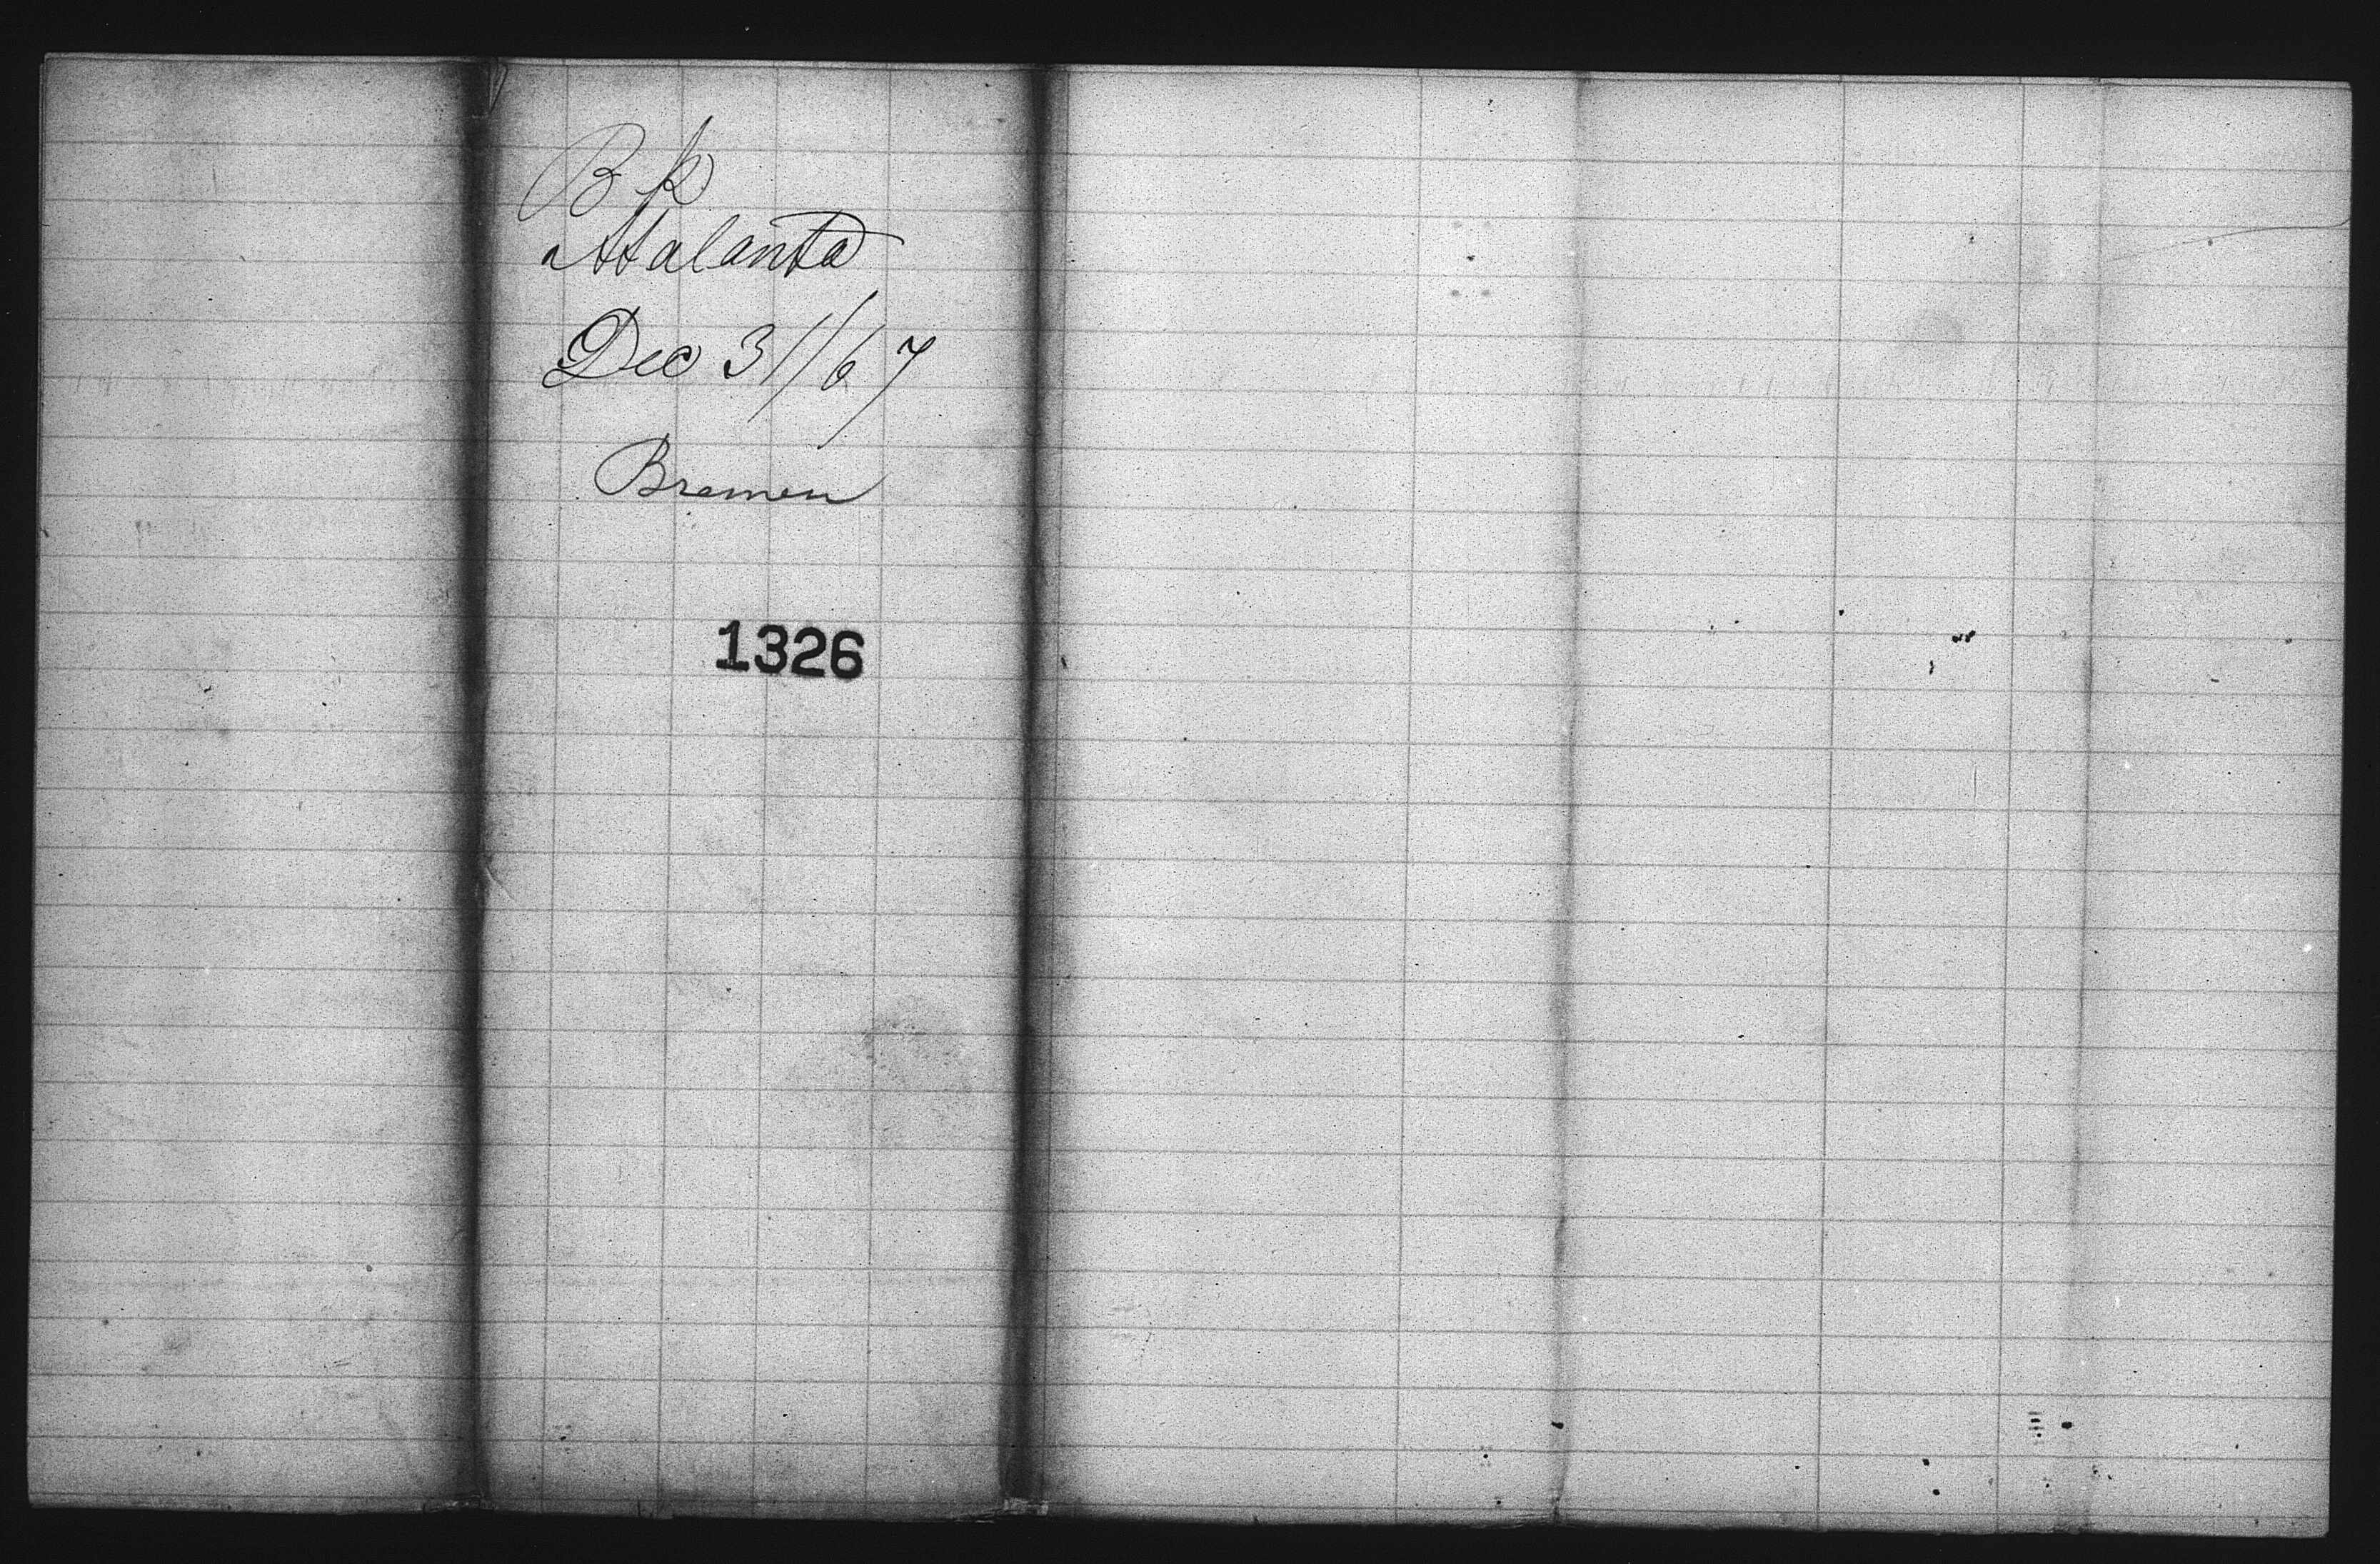 Bk
Atalanta
Dec 31/67
Bremen
1326